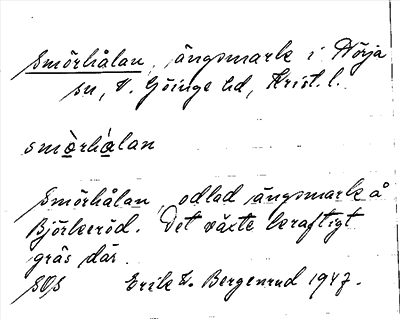 Smörhålan, ängsmark i Nörja
sn, V. Göinge hd, Krist. l.
smòrhálan
Smörhålan, odlad ängsmark å
Björkeröd. Det växte kraftigt
gräs där.
SOS Erik V. Bergenrud 1947.